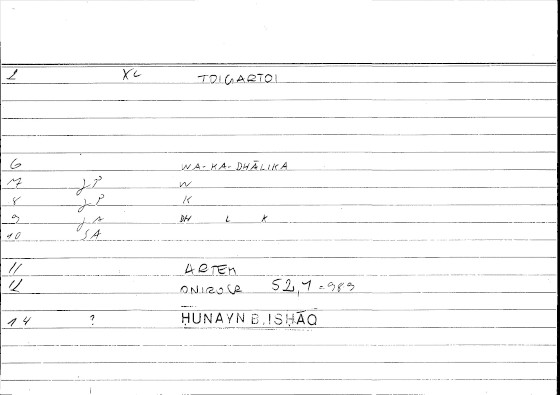 1 XL TOIGARTOI
6 WA-KA-DHĀLIKA
7 JP W
8 JP K
9 JA DH L K
10 SA
11 ARTEM
12 ONIROCR 52,1 = 989
14 ? ḤUNAYN B. ISḤĀQ